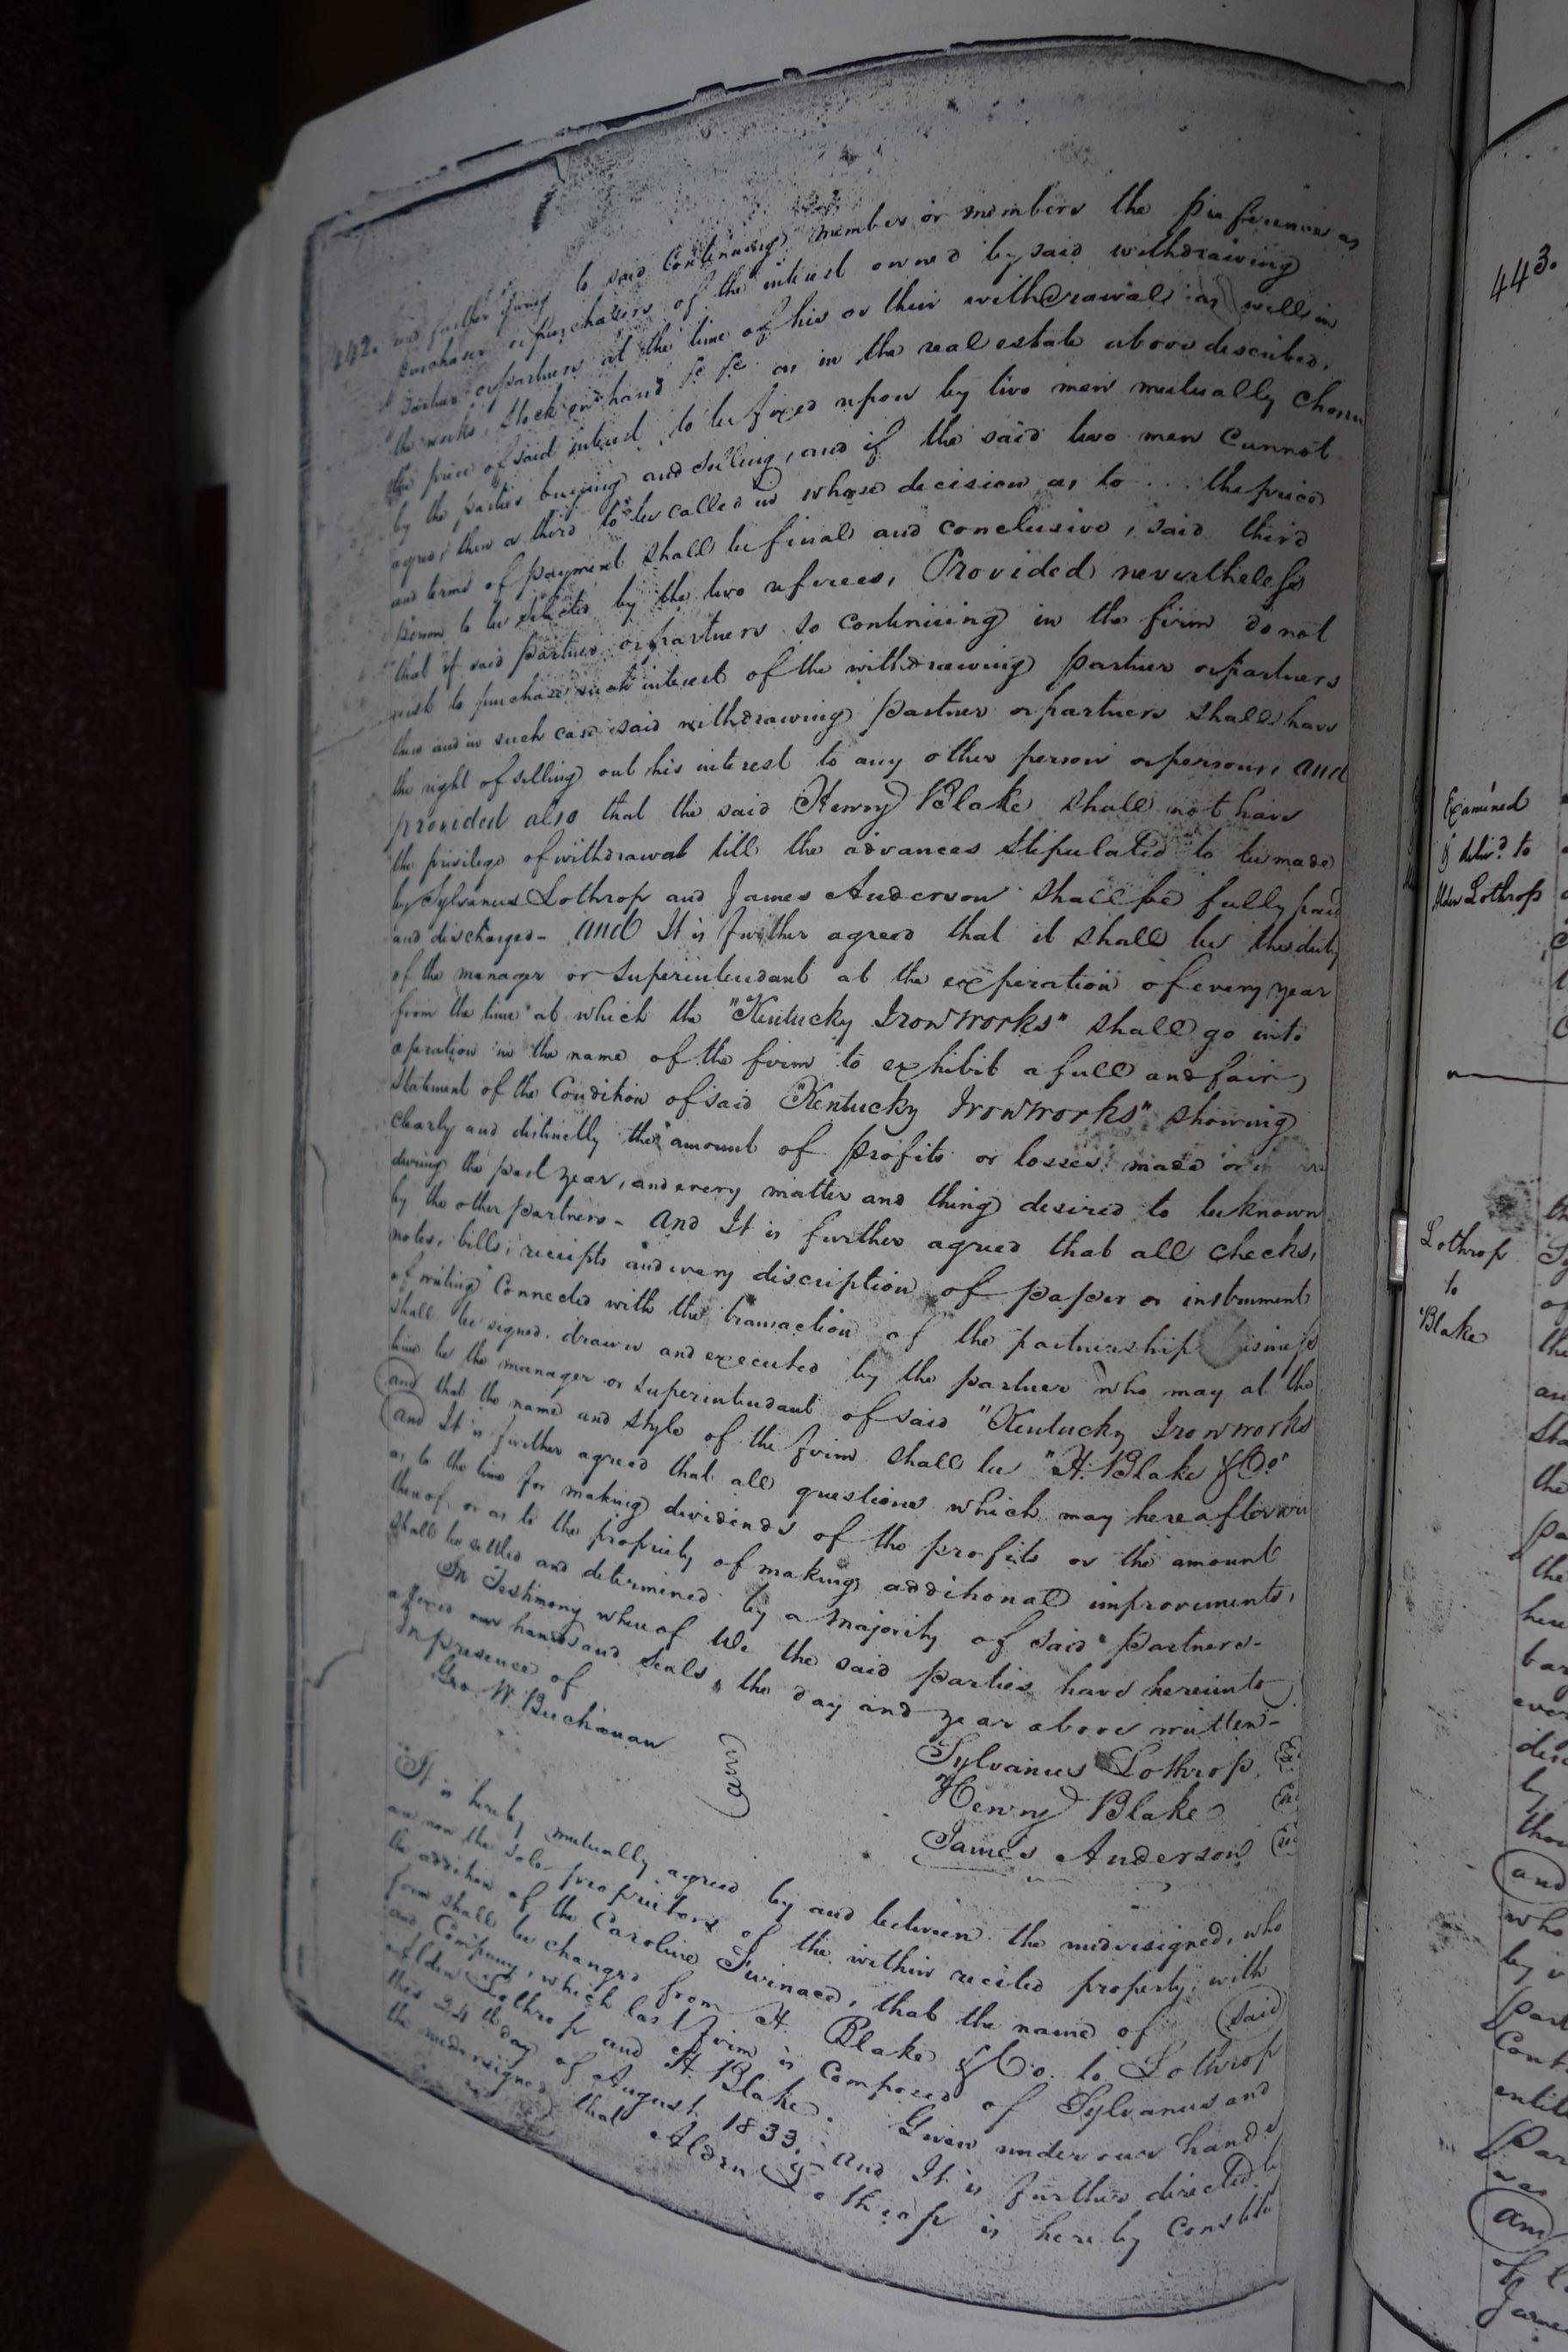 442. and further to said Continuing member or members the preference as
purchaser or purchasers of the interest owned by said withdrawing
partner or partners at the time of his or their withdrawal as well in
the works, Stock on hand &c &c as in the real estate above described,
the price of said interest to be fixed upon by two men mutually chosen
by the parties buying and selling, and if the said two men Cannot
agree, then a third to be called in whose decision as to ... the price
and terms of payment shall be final and conclusive, said third
person to be selected by the two referees, Provided nevertheless
that if said partner or partners so continuing in the firm do not
wish to purchase such interest of the withdrawing partner or partners
then and in such case said withdrawing partner or partners shall have
the right of selling out his interest to any other person or persons, and
provided also that the said Henry Blake shall not have
the privilege of withdrawal till the advances stipulated to be made
by Sylvanus Lothrop and James Anderson shall be fully paid
and discharged - and It is further agreed that it shall be the duty
of the manager or Superintendant at the expiration of every year
from the time at which the "Kentucky Iron Works" shall go into
operation in the name of the firm to exhibit a full and fair
Statement of the Condition of said "Kentucky Iron Works" showing
clearly and distinctly the amount of profits or losses made or
during the past year, and every matter and thing desired to be known
by the other partners - And It is further agreed that all checks,
notes, bills, receipts and every discription of paper or instrument
of writing Connected with the transaction of the partnership business
shall be signed, drawn and executed by the partner who may at the
time be the manager or superintendant of said "Kentucky Iron Works
and that the name and style of the firm shall be "H. Blake & Co."
and It is further agreed that all questions which may hereafter
as to the time for making dividends of the profits or the amount
thereof or as to the propriety of making additional improvements,
shall be settled and determined by a majority of said partners -
In Testimony whereof We the said parties have hereunto
affixed our hands and seals, the day and year above written -
In presence of
Geo. W. Buchanan
Sylvanus Lothrop
Henry Blake
James Anderson
and
It is hereby mutually agreed by and between the undersigned, who
are now the sole proprietors of the within recited property, with
the addition of the Caroline Furnace, that the name of said
firm shall be changed from H. Blake & Co. to Lothrop
and Company, which last firm is Composed of Sylvanus and
Alden Lothrop and H. Blake. Given under our hands
this 24th day of August 1833, and It is further directed by
the undersigned that Alden Lothrop is hereby Constitu
443.
Examined
& deliv.d to
Alden Lothrop
Lothrop
to
Blake